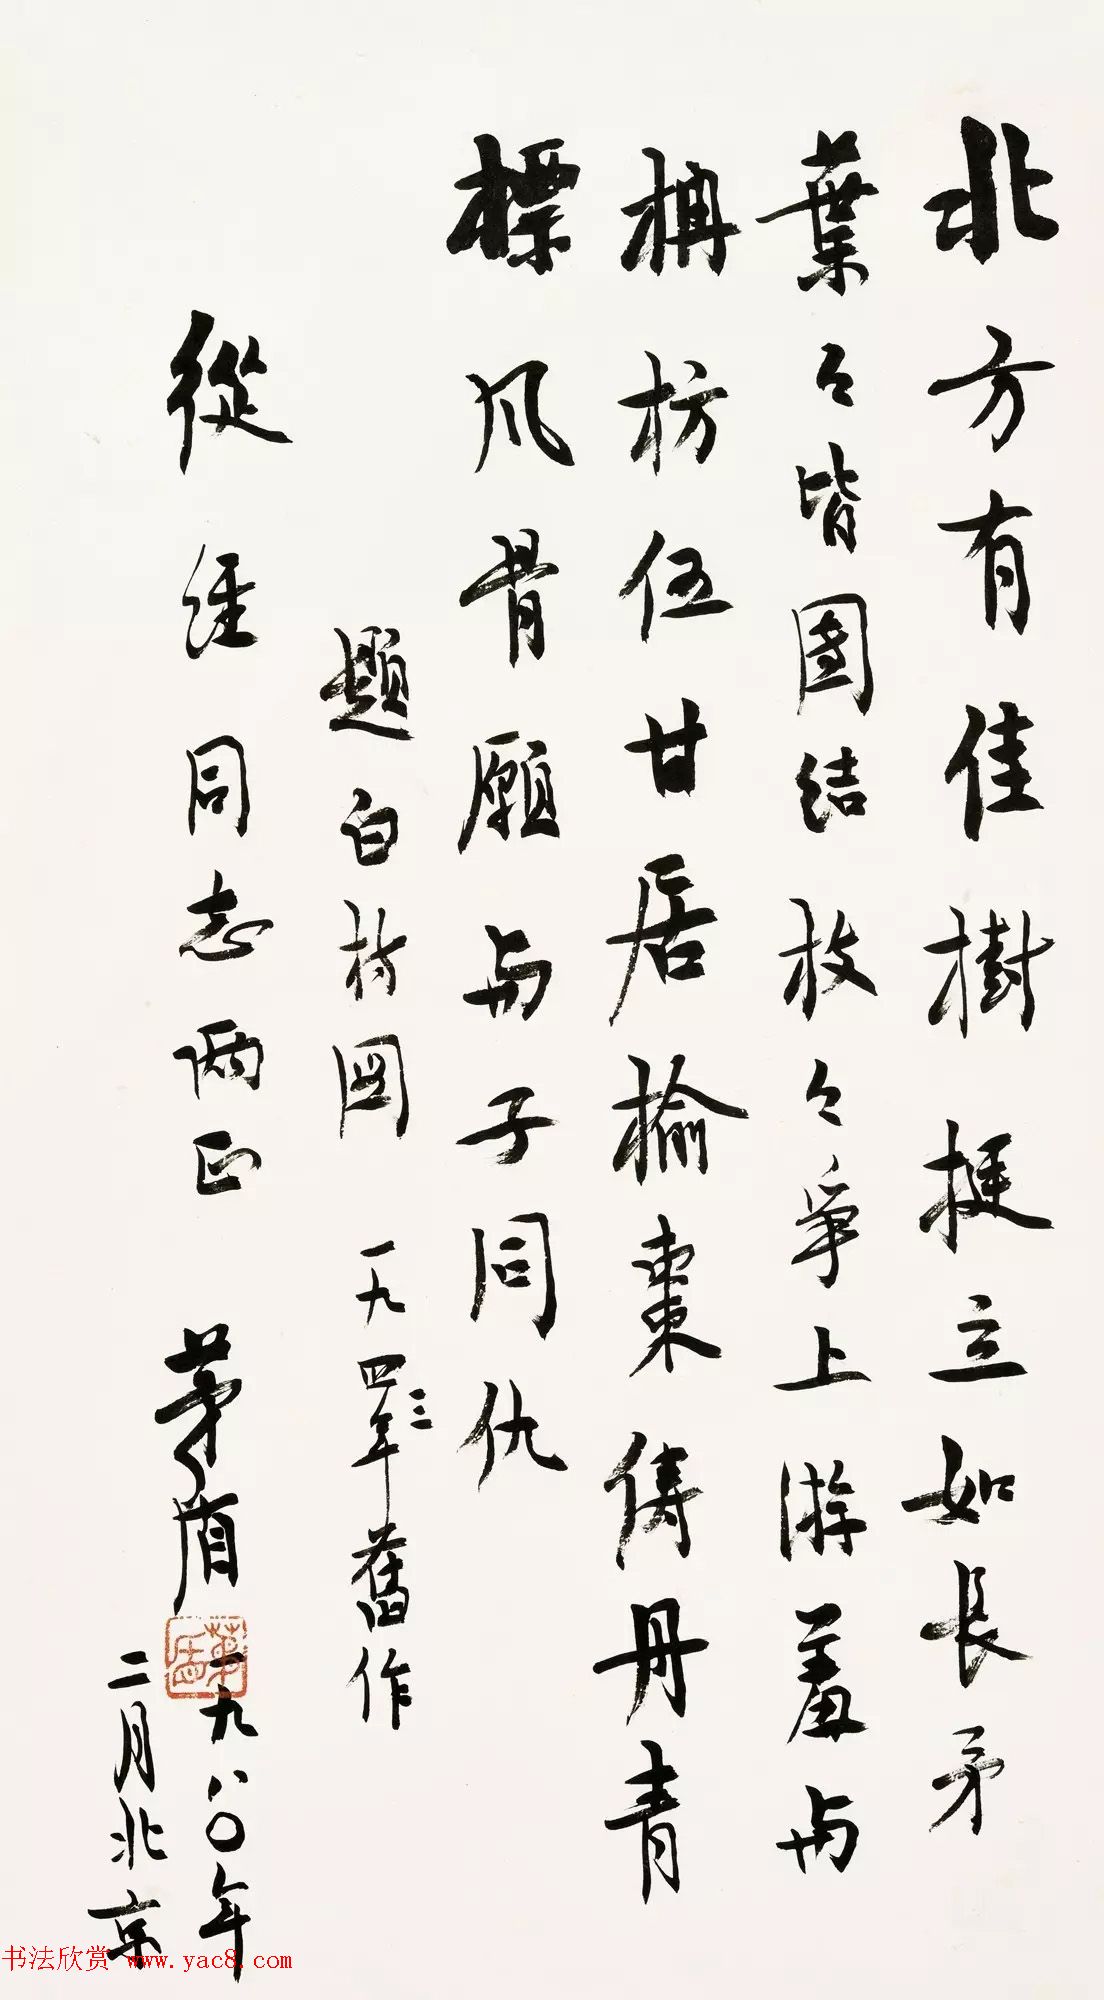 北方有佳樹挺立如長矛
葉々皆團結枝々爭上游羞与
柟枋伍甘居榆棗儔丹青
標风骨願与子同仇
題白楊图 一九四三年舊作
從经同志两正 茅盾 一九八〇年
二月北京
茅盾
书法欣赏 www.yac8.com